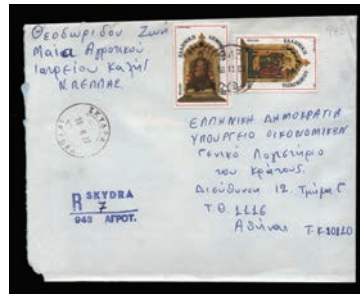 Θεοδωρίδου Ζωή
Μαία Αγροτικού
Ιατρείου Καλής
Ν. ΠΕΛΛΑΣ
ΕΛΛΗΝΙΚΗ ΔΗΜΟΚΡΑΤΙΑ
ΕΛΛΗΝΙΚΗ ΔΗΜΟΚΡΑΤΙΑ
ΣΚΥΔΡΑ
R SKYDRA
7
943 ΑΓΡΟΤ.
ΕΛΛΗΝΙΚΗ ΔΗΜΟΚΡΑΤΙΑ
ΥΠΟΥΡΓΕΙΟ ΟΙΚΟΝΟΜΙΚΩΝ
Γενικό Λογιστήριο
του Κράτους
Διεύθυνση 12 Τμήμα Γ
Τ.Θ. 1116
Αθήνα Τ.Κ 10110